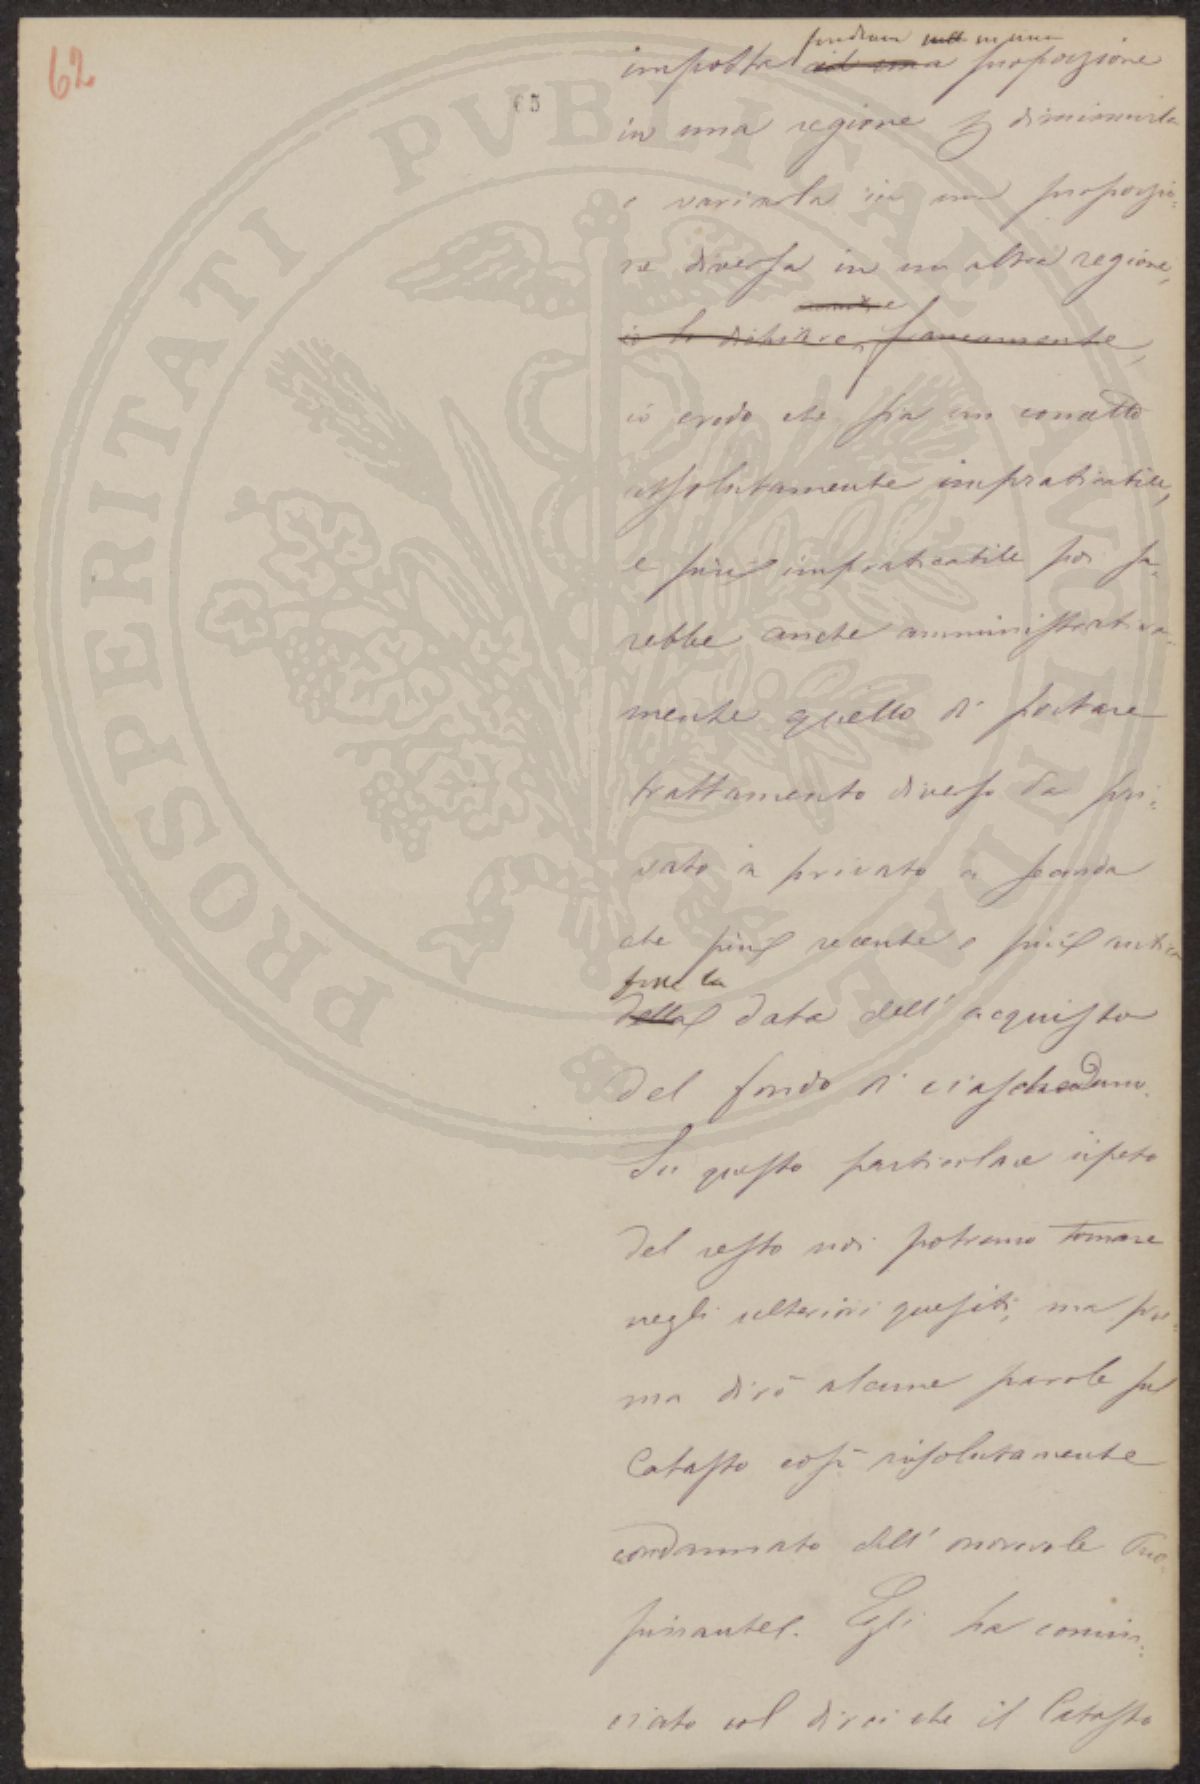 62
65
fondiaria in una
imposta ad una proporzione
in una regione e diminuirla
o variarla in una proporzio=
ne diversa in un altra regione,
io lo dichiaro francamente,
io credo che sia un concetto
assolutamente impraticabile,
e più impraticabile poi sa=
rebbe anche amministrativa=
mente quello di portare
trattamento diverso da pri=
vato a privato a seconda
che più recente o più antica
fosse la
della data dell' acquisto
del fondo di ciascheduno.
Su questo particolare ripeto
del resto noi potremo tornare
negli ulteriori quesiti, ma pri=
ma dirò alcune parole sul
Catasto così risolutamente
condannato dall' onorevole
Egli ha comin=
ciato col dirci che il Catasto
PROSPERITATI PVBLICAE